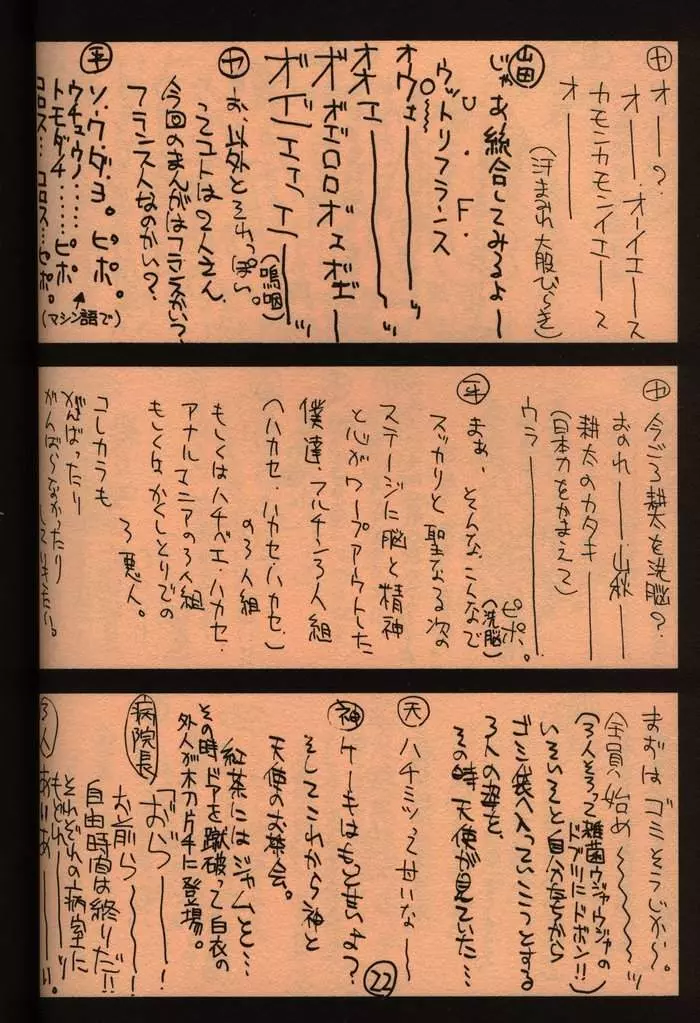 ヤ
オーー?
オーー.オーイエーース
カモンカモンイエーース
オーーー
(汗まみれ大股びらき)
山田
じゃあ統合してみるよ〜
U.F.O〜
ウットリフランス
オウェーーー
オオエーーーッ
オボボエロロオェオボェー
オボエェェエーーッ
(嗚咽)
ヤ
お、以外とそれっぽい。
ってコトは2人さん、
今回のまんがはフランスかい?
フランス人なのかい?
平
ソ.ウ.ダ.ヨ。ピポ。
ウチュウノ……ピポ
トモダチ
コロス…コロス…ピポ。
(マシン語で)
ヤ
今ごろ耕太を洗脳?
おのれーー山秋ーー
耕太のカタキーー
(日本刀をかまえて)
ウラーーーー
ピポ。
(洗脳)
平
まぁ、そんなこんなで
スッカリと聖なる次の
ステージに脳と精神
と心がワープアウトした
僕達フルチン3人組
(ハカセ・ハカセ・ハカセ・)
の3人組
もしくはハチベエ・ハカセ・
アナルマニアの3人組
もしくはかくしとりでの
3悪人。
コレカラも
がんばったり
がんばらなかったり
していきたい。
まずはゴミそうじから。
全員、始め〜〜〜ッ
(3人そろって雑菌ウジャウジャの
ドブ川にドボン!!)
いそいそと自分たちから
ゴミ袋へ入っていこうとする
3人の姿を、
その時天使が見ていた…
天
ハチミツって甘いな〜
神
ケーキはもっと甘いよ?
そしてこれから神と
天使のお茶会。
紅茶にはジャムと…
その時ドアを蹴破って白衣の
外人が木刀片手に登場。
病院長
「おらーーー!
お前らーーー!
自由時間は終りだ!!
それぞれの病室に
もどれーーーッ
3人
あいあーーーい。
22